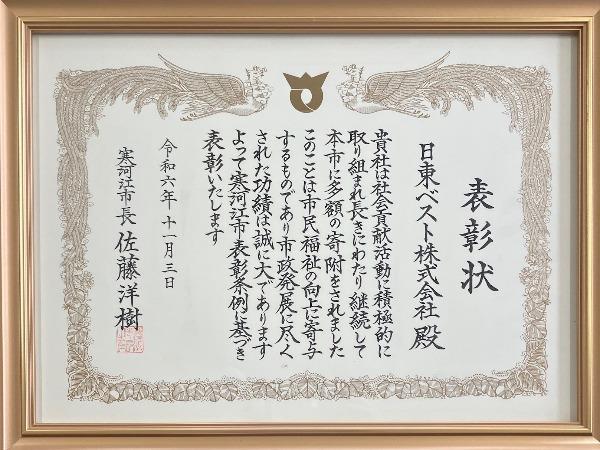 表彰状
日東ベスト株式会社 殿
貴社は社会貢献活動に積極的に
取り組まれ長きにわたり継続して
本市に多額の寄附をされました
このことは市民福祉の向上に寄与
するものであり市政発展に尽く
された功績は誠に大であります
よって寒河江市表彰条例に基づき
表彰いたします
令和六年十一月三日
寒河江市長 佐藤洋樹